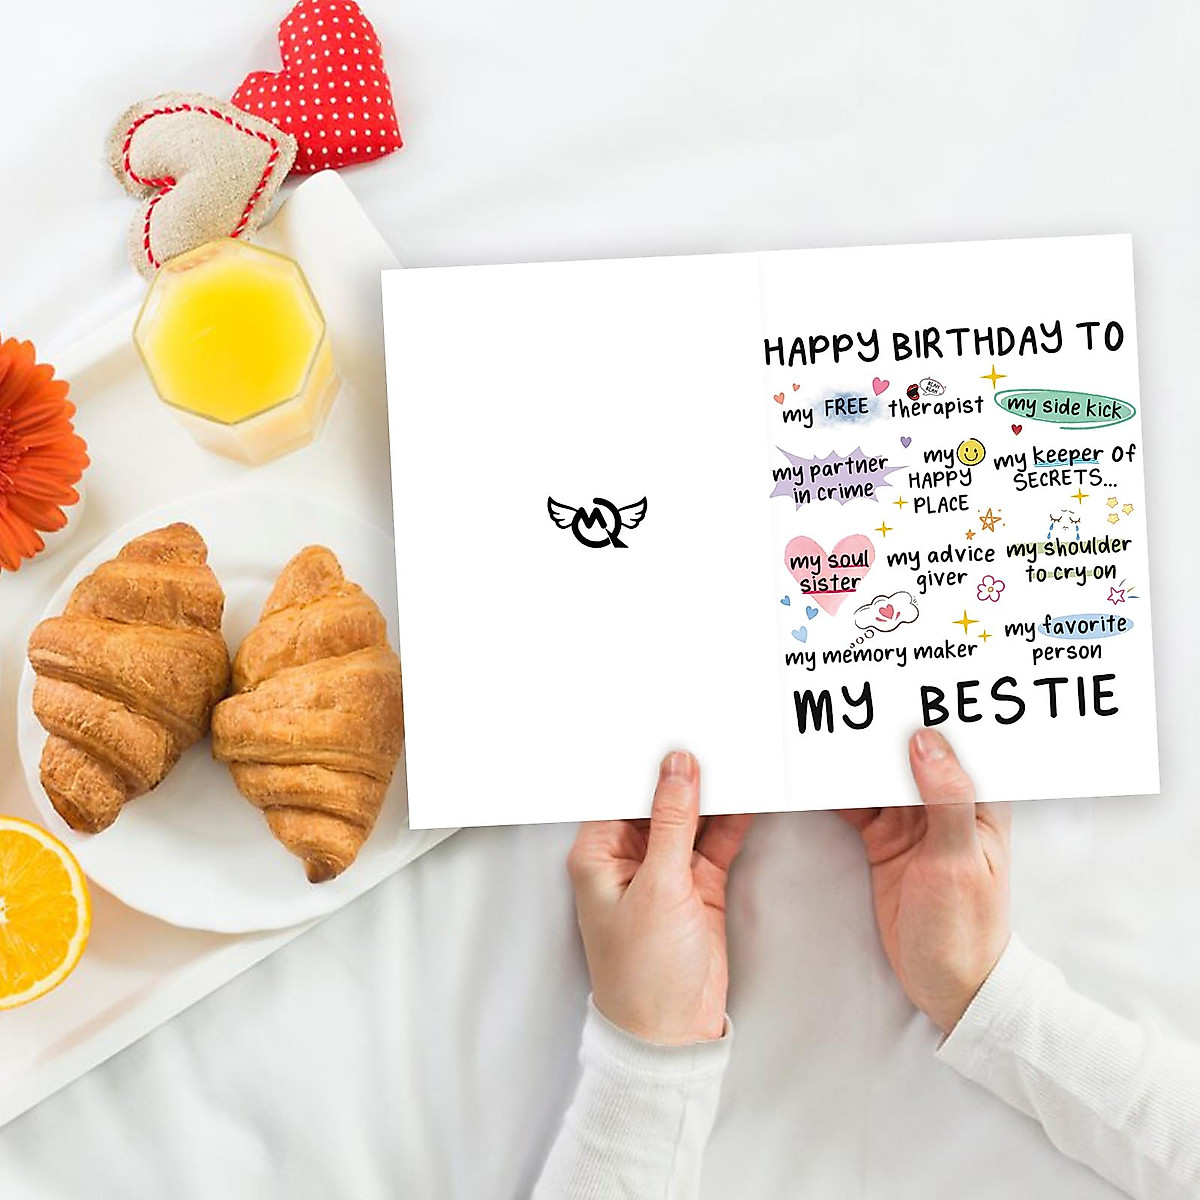 HAPPY BIRTHDAY TO
my FREE therapist
BLAH
BLAH
my side kick
my partner
in crime
my
HAPPY
PLACE
my keeper of
SECRETS...
my soul
sister
my advice
giver
my shoulder
to cry on
my memory maker
my favorite
person
MY BESTIE